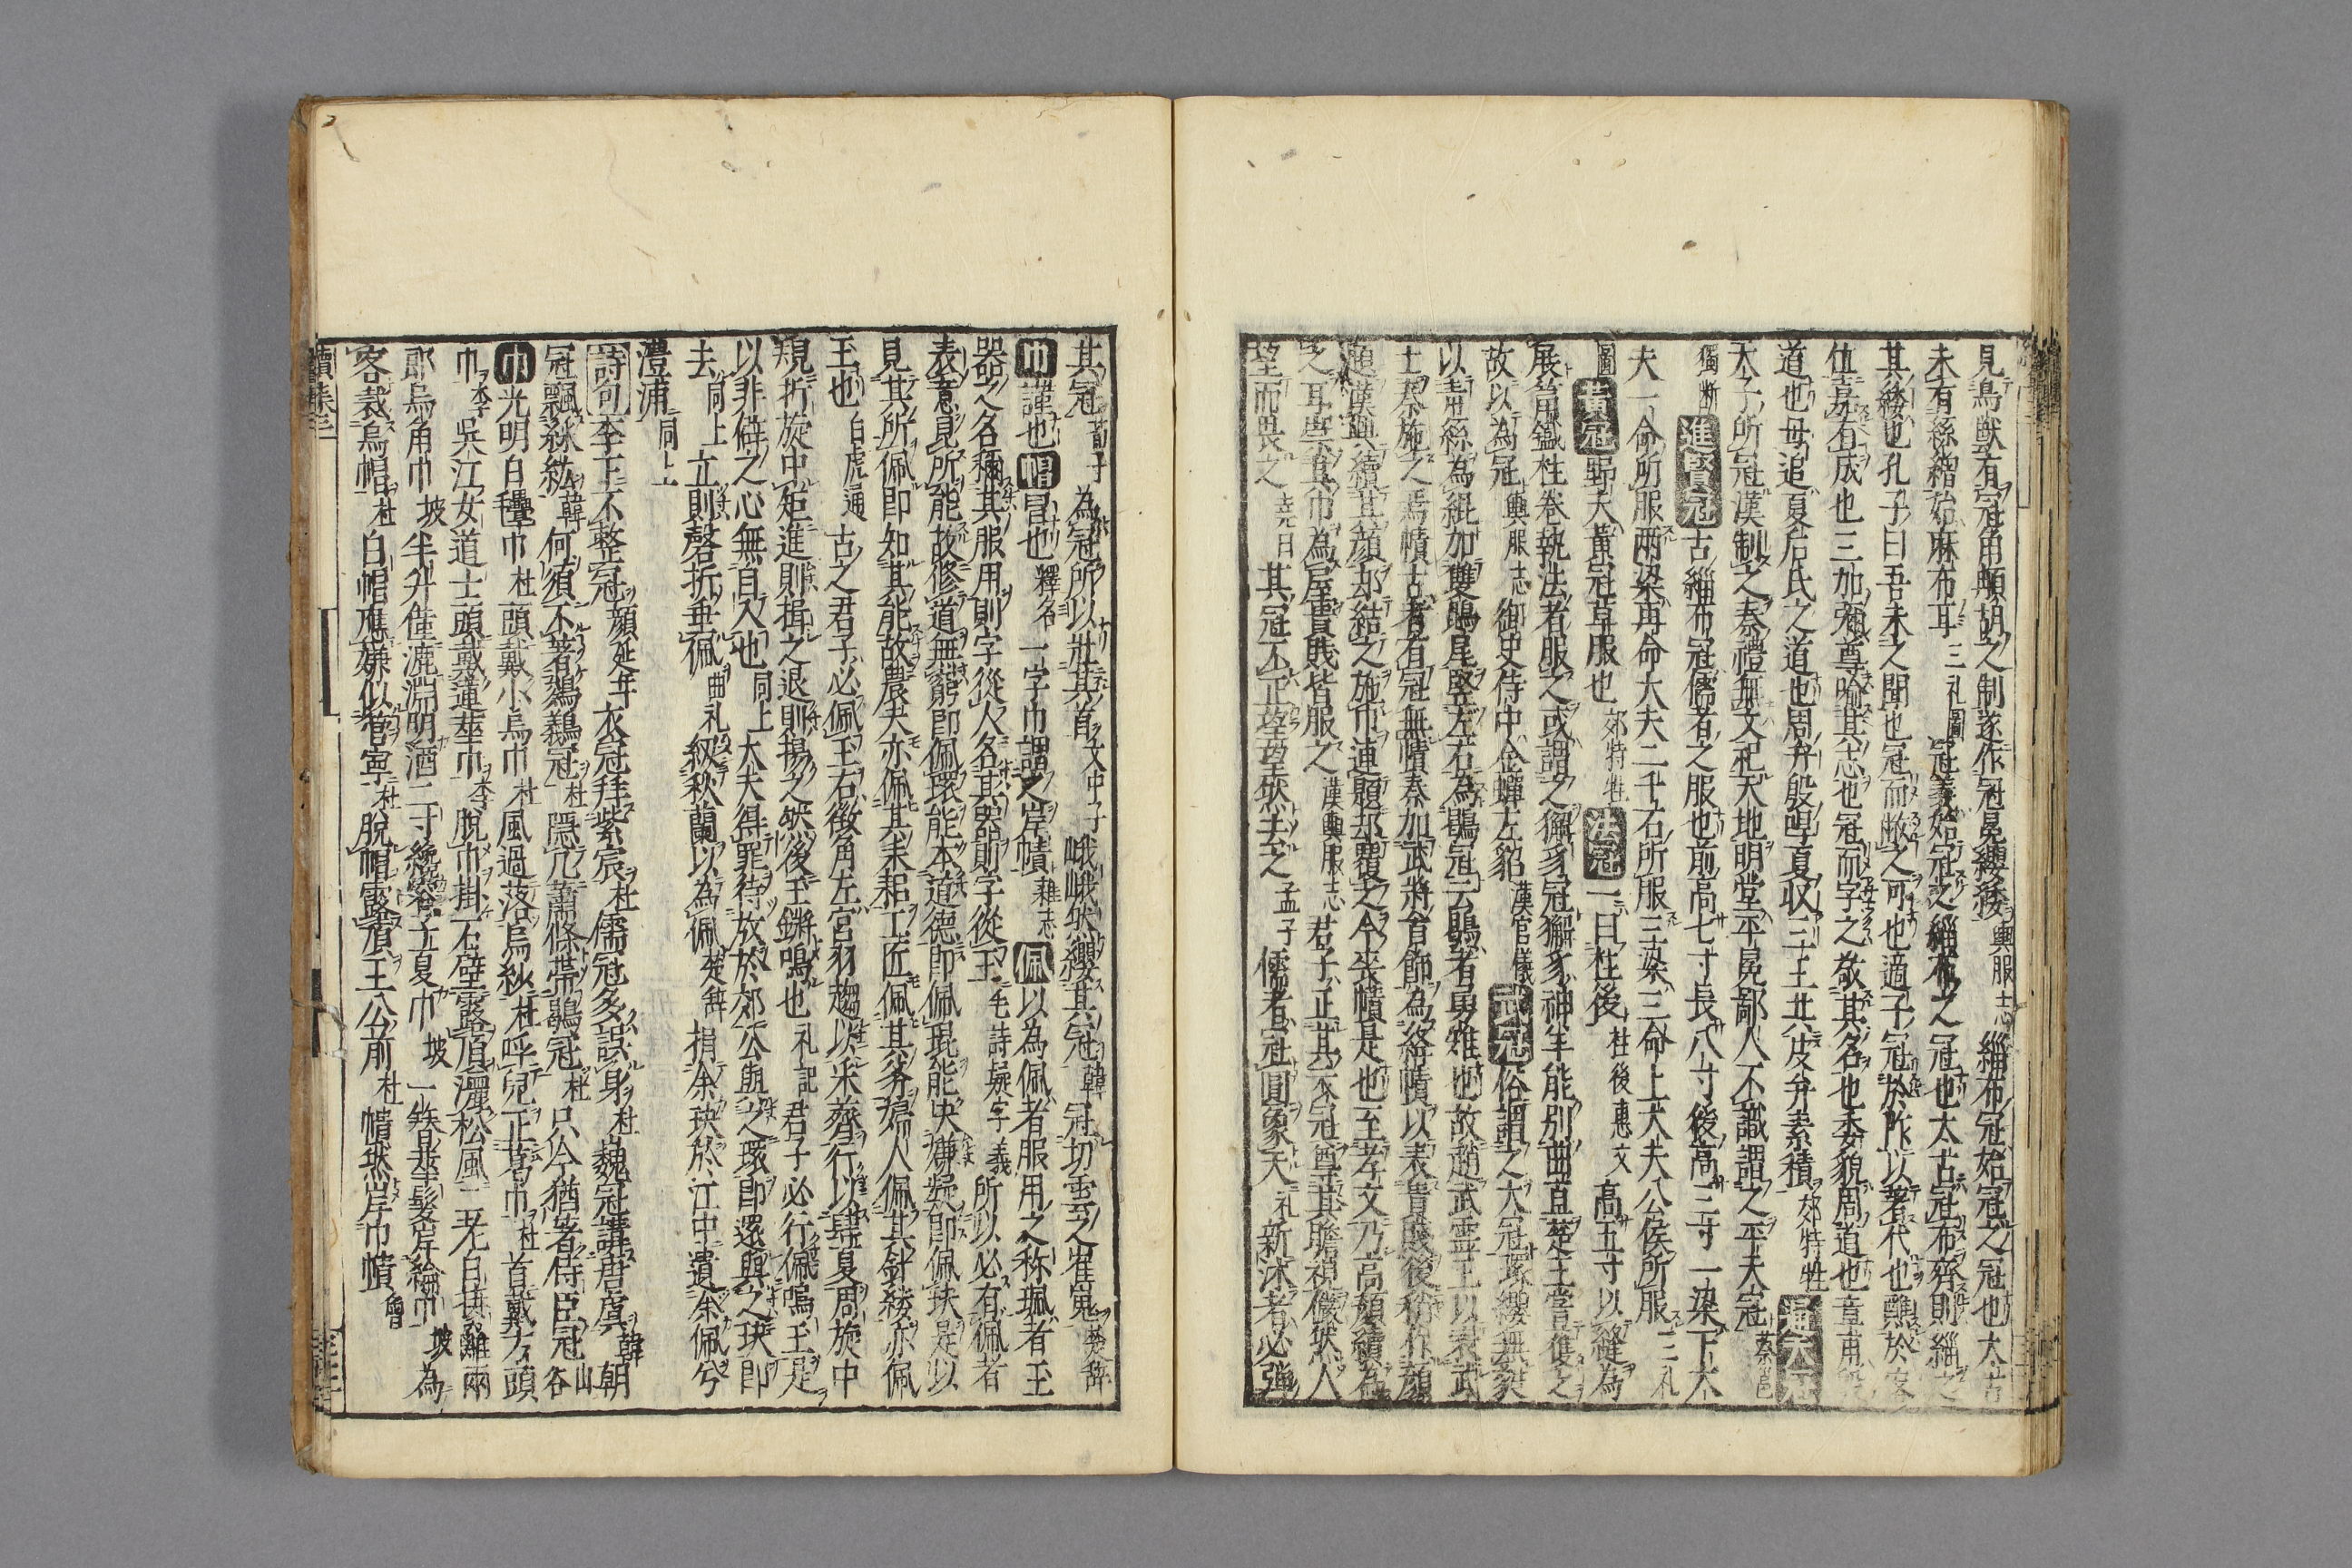 見鳥獸有冠角䫇胡之制遂作冠冕纓緌輿服志 緇布冠始冠之冠也大古
未有絲繒始麻布耳三礼圖 冠義始冠之緇布之冠也太古冠布齊則緇之
其緌也孔子曰吾未之聞也冠而敝之可也適子冠於阼以著代也醮於客
位嘉有成也三加彌尊喻其志也冠而字之敬其名也委貌周道也章甫殷
道也毋追夏后氏之道也周弁殷哻夏収三王共皮弁素積郊特牲 通天冠
天子所冠漢制之秦禮無文祀天地明堂平冕鄙人不識謂之平天冠蔡邕
獨断 進賢冠古緇布冠儒者之服也前高七寸長八寸後高三寸一梁下大
夫一命所服兩梁再命大夫二千石所服三梁三命上大夫公侯所服三礼
圖 黃冠野夫黃冠草服也郊特牲 法冠一曰柱後柱後惠文 高五寸以縫為
展筩鐵柱卷執法者服之或謂之獬豸冠獬豸神羊能別曲直楚王嘗獲之
故以為冠輿服志 御史侍中金蟬左貂漢官儀 武冠俗謂之大冠環纓無蕤
以青絲為緄加雙鶡尾竪左右為鶡冠云鶡者勇雉也故趙武靈王以表武
士秦施之焉幘古者有冠無幘秦加武將首飾為絳幘以表貴賤後稍作顔
題漢興續其顔却結之施巾連題却覆之今喪幘是也至孝文乃高顔續為
之耳崇其巾為屋貴賤皆服之漢輿服志 君子正其衣冠尊其瞻視儼然人
望而畏之堯曰 其冠不正望望然去之孟子 儒者冠圓象天礼 新沐者必彈
其冠荀子 為冠所以莊其首文中子 峨峨然纓其冠韓 冠切雲之崔嵬楚辞
巾謹也帽冒也釋名 一字巾謂之岸幘雜志 佩以為佩者服用之称珮者玉
器之名稱其服用則字從人名其器則字從玉毛詩疑字義 所以必有佩者
表意見所能故修道無窮即佩環能本道德即佩琨能决嫌疑即佩玦是以
見其所佩即知其能故農夫亦佩其耒耜工匠佩其斧婦人佩其針縷亦佩
玉也白虎通 古之君子必佩玉右徴角左宮羽趨以采薺行以肆夏周旋中
規折旋中矩進則揖之退則揚之然後玉鏘鳴也礼記 君子必行佩鳴玉是
以非僻之心無自入也同上 大夫得罪待放於郊公與之環即還與之玦即
去同上 立則磬折垂佩曲礼 紉秋蘭以為佩楚辞 捐余玦於江中遺余佩兮
澧浦同上
詩句 李下不整冠顔延年 衣冠拜紫宸杜 儒冠多誤身杜 嵬冠講唐虞韓 朝
冠飄綵紘韓 何須不著鵕鸃冠杜 隱几蕭條帶鶡冠杜 只今猶著侍臣冠山谷
巾光明白㲲巾杜 頭戴小烏巾杜 風過落烏紗杜 呼兒正葛巾杜 首戴方頭
巾李 吳江女道士頭戴蓮華巾李 脫巾掛石壁露頂灑松風二 无白接䍦兩
郎烏角巾坡 半升僅漉淵明酒二寸纔容子夏巾坡 一簇華髮岸綸巾坡 為
客裁烏帽杜 白帽應嫌似管寧杜 脫帽露頂王公前杜 幘然岸巾幘韓